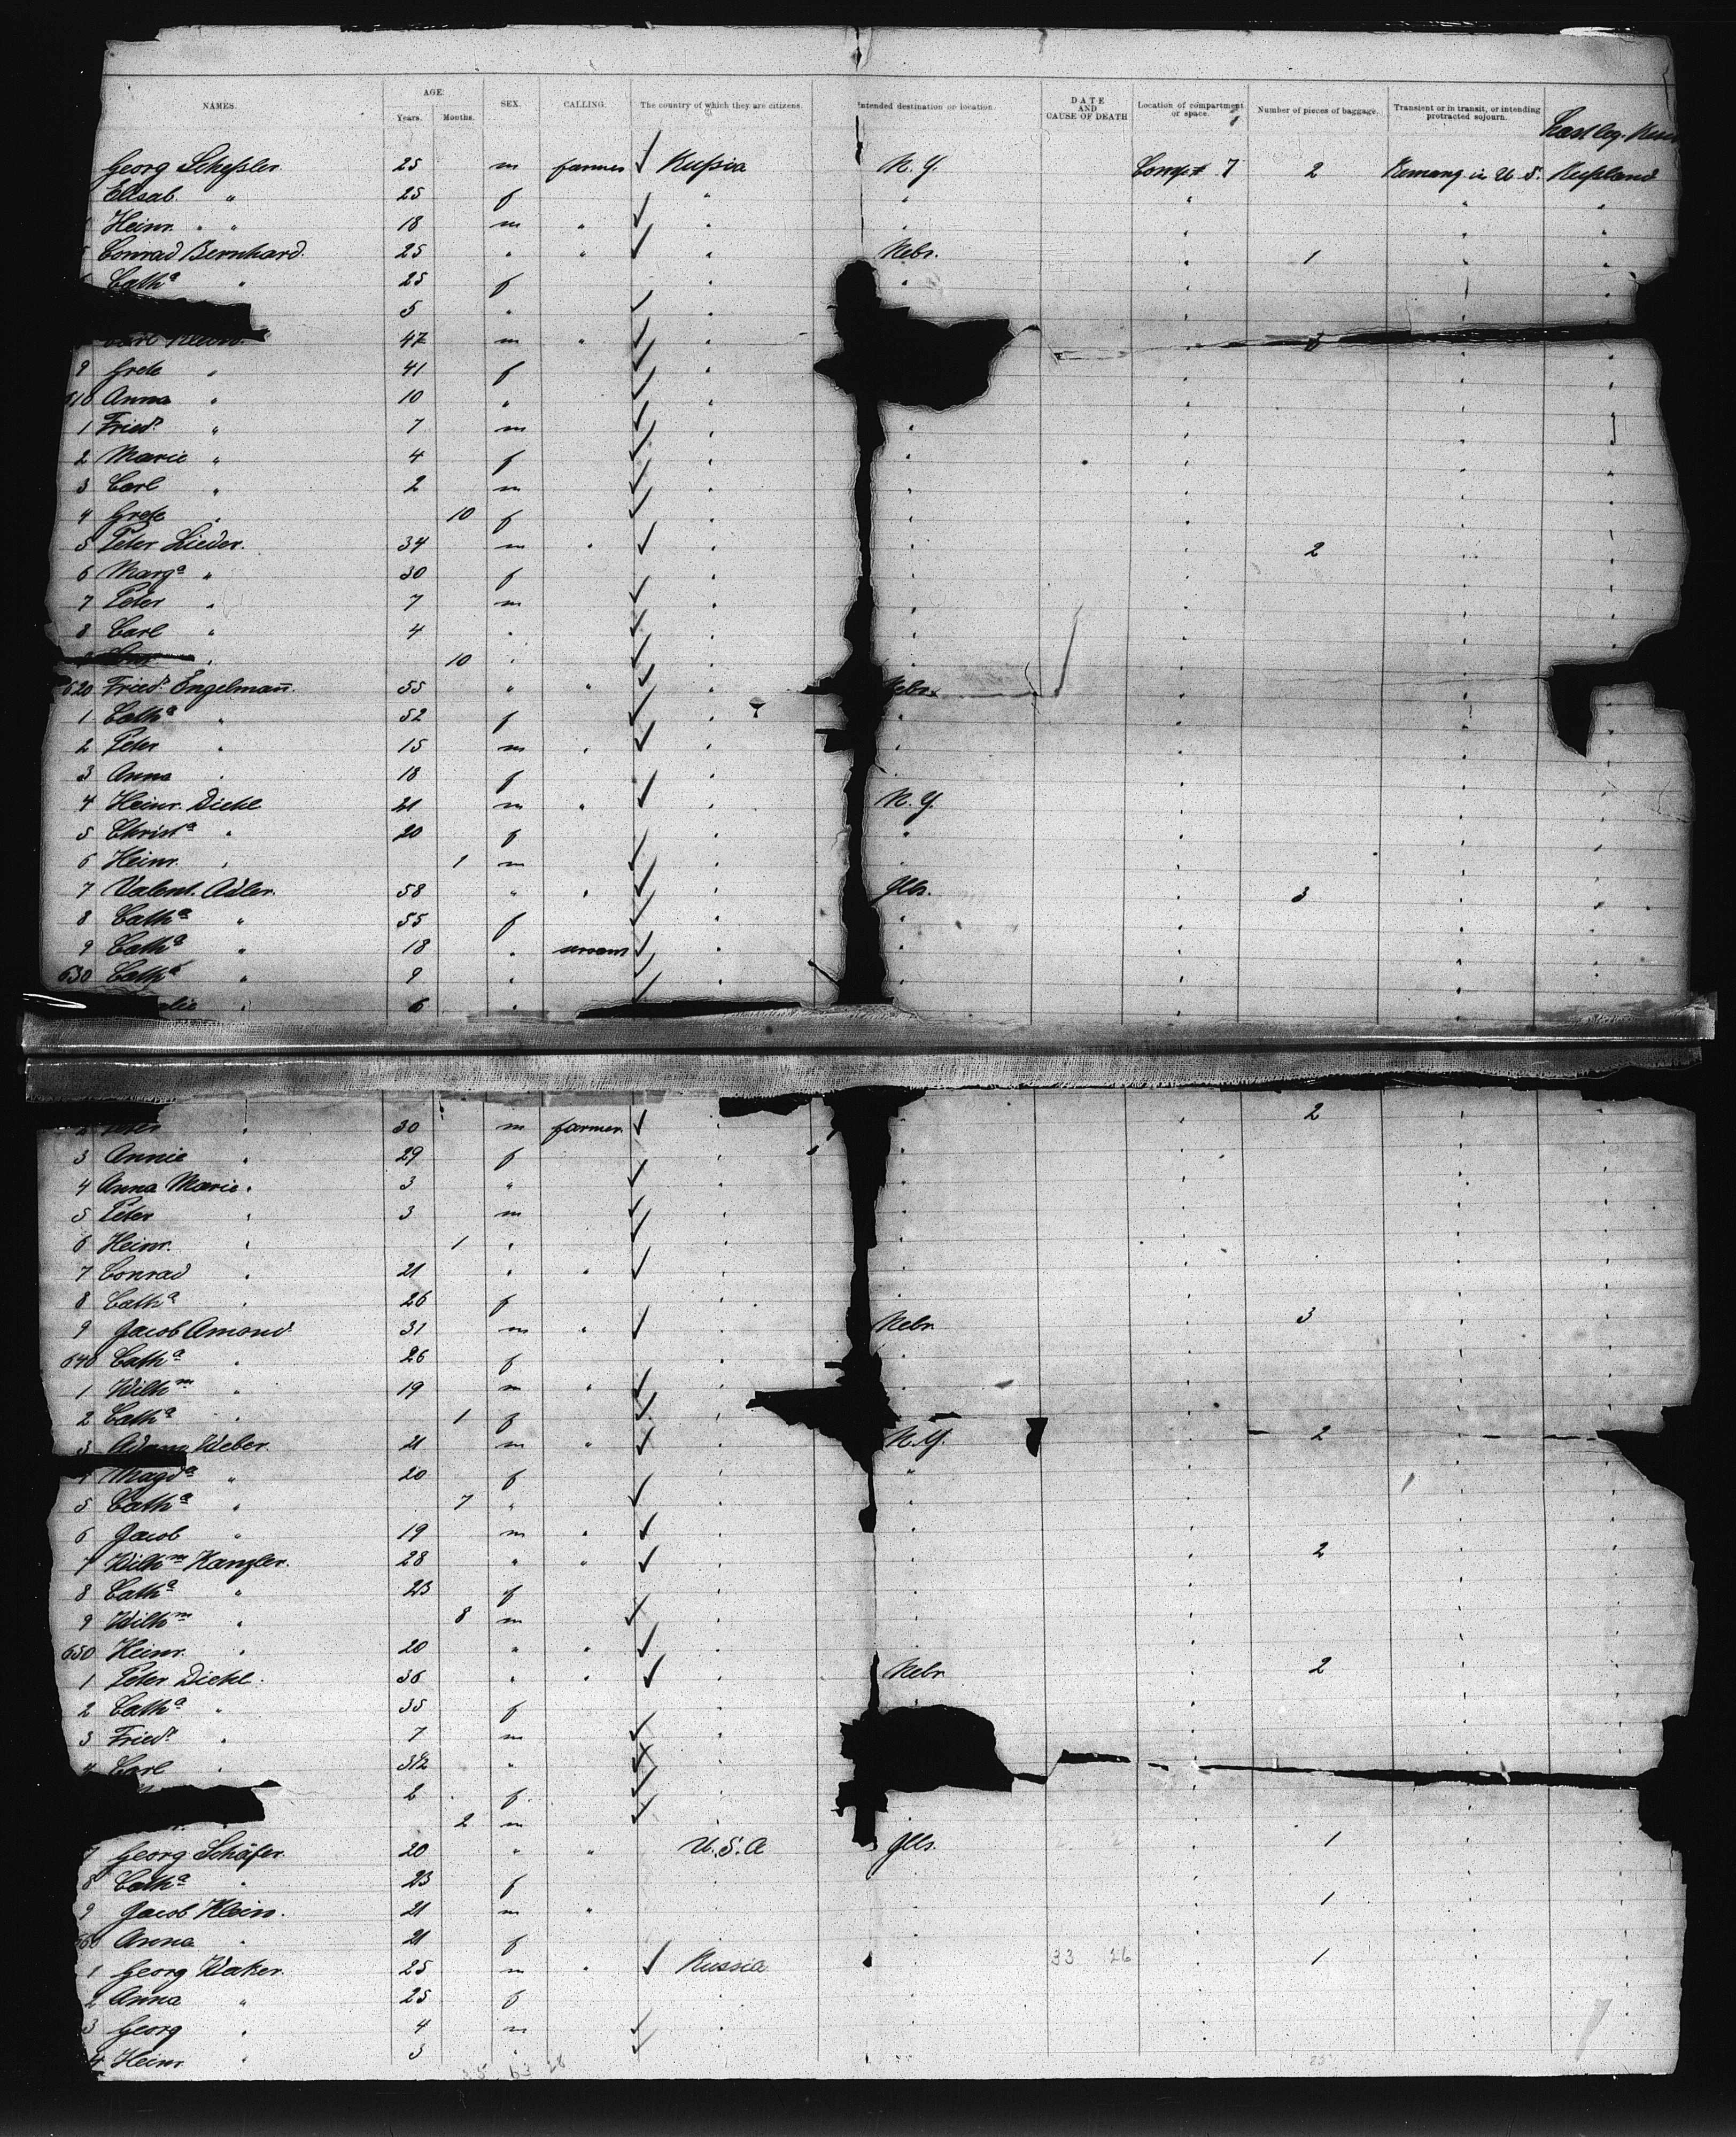 NAMES. AGE. Years. Months. SEX. CALLING. The country of which they are citizens. Intended destination or location. DATE AND CAUSE OF DEATH Location of compartment or space. Number of pieces of baggage. Transient or in transit, or intending protracted sojourn.
Last leg.
Georg Scheßler 25 m farmer Rußia N.Y. Compt 7 2 Remang in U.S. Rußland
Elisab. " 25 f " " " " "
Heinr. " " 18 m " " " " " "
5 Conrad Bernhard. 25 " " " Nebr. " 1 " "
6 Catha " 25 f " " " " "
5 "
47 m " " 3
9 Grete " 41 f "
610 Anna " 10 " "
1 Friedr. " 7 m " "
2 Marie " 4 f " "
3 Carl " 2 m " "
4 Grete " 10 f " "
5 Peter Lieder. 34 m " " " 2
6 Marga " 30 f " "
7 Peter " 7 m " "
8 Carl " 4 " " "
10 " "
620 Friedr. Engelmann. 55 " " " Nebr.
1 Catha " 52 f " "
2 Peter " 15 m " " "
3 Anna " 18 f "
4 Heinr. Diehl 21 m " " N.Y.
5 Christa " 20 f " "
6 Heinr. " 1 m " "
7 Valent. Adler. 58 " " " Ills. 3
8 Catha " 55 f " "
9 Catha " 18 " servant " "
630 Catha " 9 " " "
6 "
2 Peter " 30 m farmer " " 2
3 Annie " 29 f " "
4 Anna Marie " 3 " " "
5 Peter " 3 m " "
6 Heinr. " 1 " " "
7 Conrad " 21 " " " "
8 Catha " 26 f " "
9 Jacob Amend 31 m " " Nebr. 3
640 Catha " 26 f " "
1 Wilhm " 19 m " " "
2 Catha " 1 f "
3 Adam Weber. 21 m " " N.Y. 2
4 Magda " 20 f " "
5 Catha " 7 " " "
6 Jacob " 19 m " " "
7 Wilhm Kanzler. 28 " " " " 2
8 Catha " 23 f " "
9 Wilhm " 8 m " "
650 Heinr. " 20 " " " "
1 Peter Diehl. 36 " " " Nebr. 2
2 Catha " 35 f " "
3 Friedr. " 7 m "
4 Carl " 3 1/2 " "
2 f "
2 m
7 Georg Schäfer. 20 " " U.S.A Ills. 1
8 Catha " 23 f " "
9 Jacob Klein. 21 m " " " 1
660 Anna " 21 f " "
1 Georg Waker. 25 m " Russia " 33 26 1
2 Anna " 25 f " "
3 Georg " 4 m " "
4 Heinr. " 3 " "